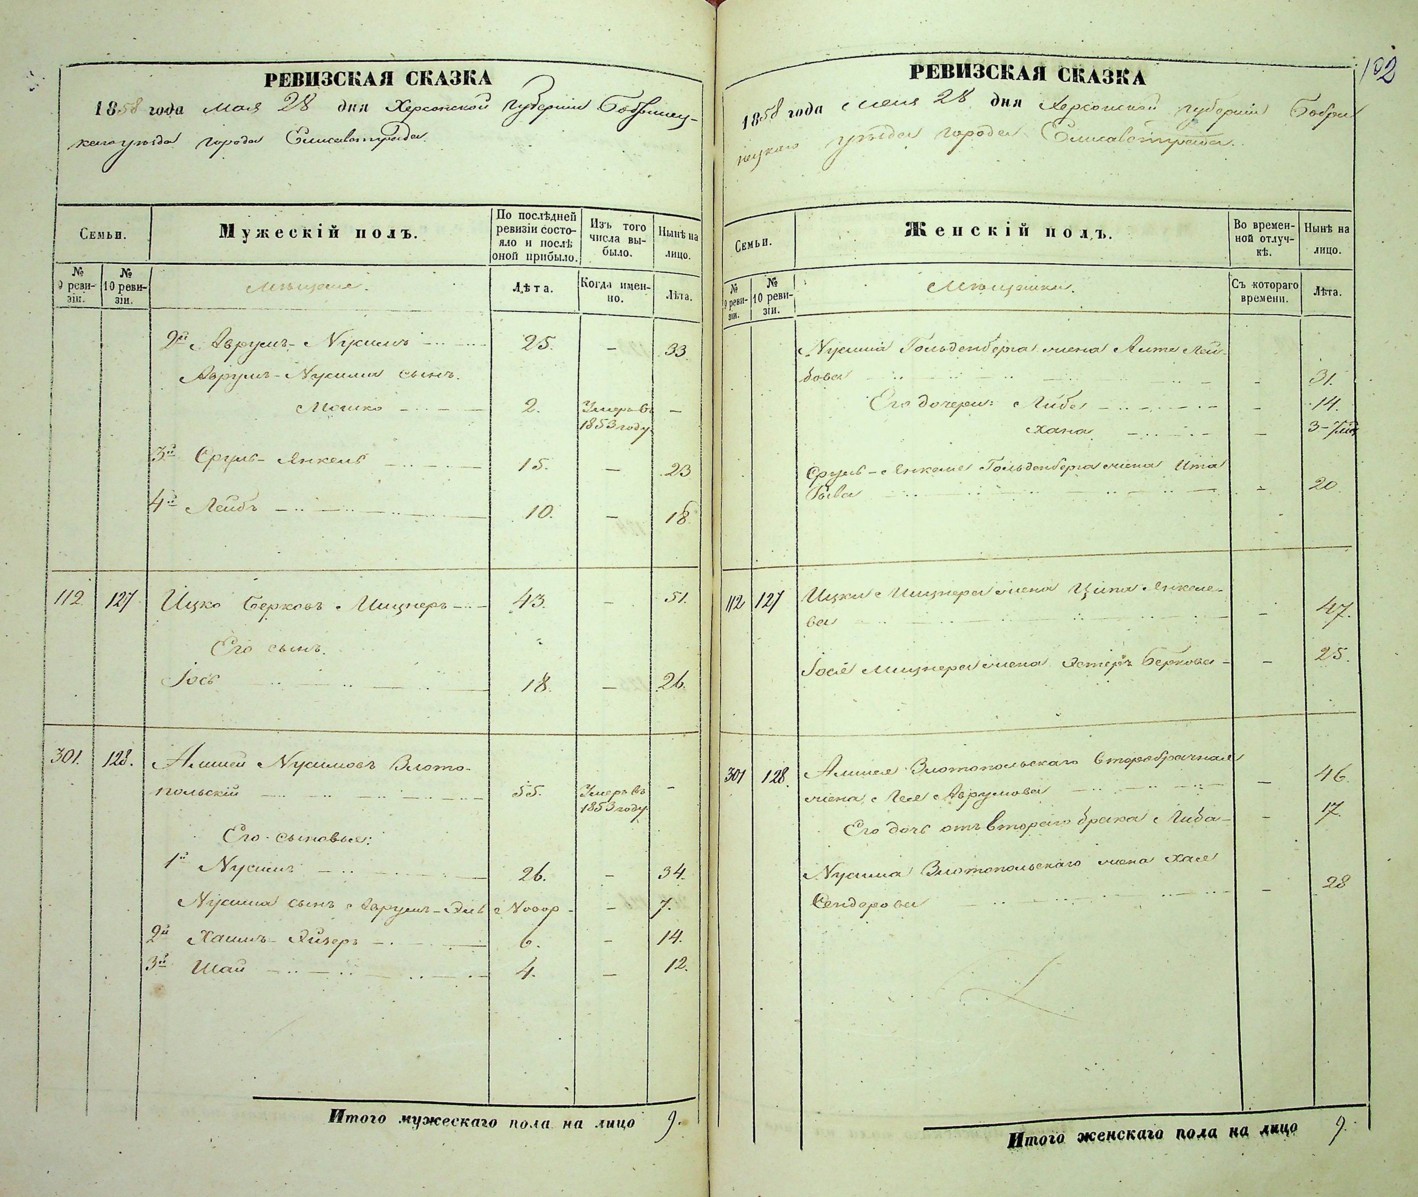 РЕВИЗСКАЯ СКАЗКА
1858 года Мая 28 дня Херсонской Губерніи Бобринец-
каго уѣзда города Елисаветграда.
Семьи.
Мужескій полъ.
По послѣдней ревизіи состо-яло и послѣ оной прибыло.
Изъ того числа вы-было.
Нынѣ на лицо.
№ 9 реви-зіи.
№ 10 реви-зіи.
Мѣщане.
Лѣта.
Когда имен-но.
Лѣта.
2й Аврумъ-Нусимъ 25. – 33.
Аврумъ-Нусима сынъ.
Мошко 2. Умеръ въ –
1853 году.
3й Сруль-Янкель 15. – 23
4й Лейбъ 10. – 18
112 127 Ицко Берковъ Мицнеръ 43. – 51.
Его сынъ.
Іосъ 18. – 26.
301. 128. Алшей Нусимовъ Злото-
польскій 55. Умеръ въ –
1853 году.
Его сыновья:
1й Нусимъ 26. – 34.
Нусима сынъ Аврумъ-Эль Новор. – 7.
2й Хаимъ-Лейзеръ 6. – 14.
3й Шай 4. – 12.
Итого мужескаго пола на лицо 9.
102
РЕВИЗСКАЯ СКАЗКА
1858 года Мая 28 дня Херсонской губерніи Бобри-
нецкаго уѣзда города Елисаветграда.
Семьи.
Женскій полъ.
Во времен-ной отлуч-кѣ.
Нынѣ на лицо.
№ 9 реви-зіи.
№ 10 реви-зіи.
Мѣщанки.
Съ котораго времени.
Лѣта.
Нусима Гольденберга жена Лей-
бова – 31.
Его дочери: Либа – 14.
Хана – 3-
Сруль-Янкеля Гольденберга жена Ита
– 20
112 127 Ицки Мицнера жена Ципа Янкеле-
ва – 47.
Іося Мицнера жена Эстеръ Беркова – 25.
301 128. Алшея Злотопольскаго второбрачная
жена Лея Аврумова – 46.
Его дочь отъ втораго брака Либа – 17.
Нусима Злотопольскаго жена Хая
Сендерова – 28
Итого женскаго пола на лицо 9.